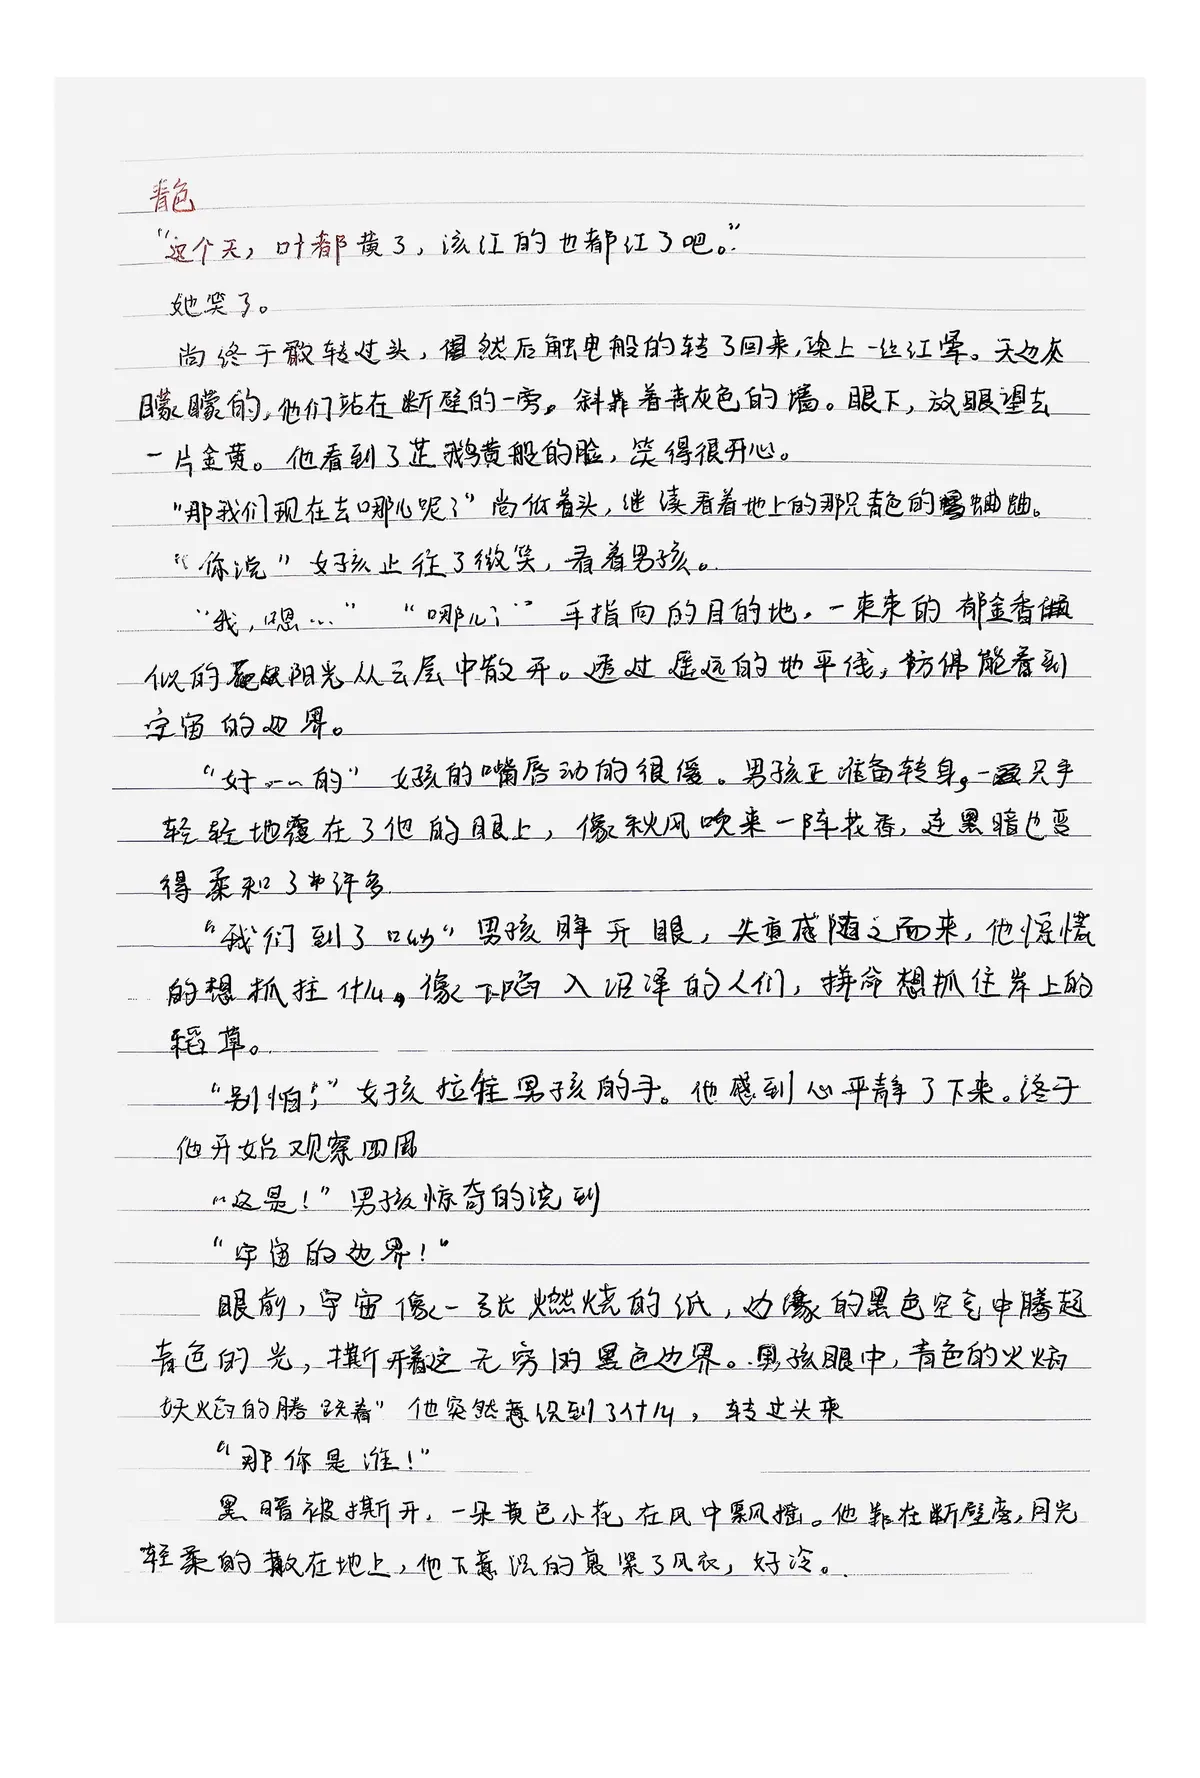 青色
“这个天，叶都黄了，该红的也都红了吧。”
她笑了。
尚终于敢转过头，偶然后触电般的转了回来，染上一丝红晕。天边灰
朦朦的，他们站在断壁的一旁。斜靠着青灰色的墙。眼下，放眼望去
一片金黄。他看到了芷鹅黄般的脸，笑得很开心。
“那我们现在去哪儿呢？”尚低着头，继续看着地上的那只青色的蛐蛐。
“你说”女孩止住了微笑，看着男孩。
“我，嗯…”“哪儿？”手指向的目的地，一束束的郁金香
似的阳光从云层中散开。透过遥远的地平线，仿佛能看到
宇宙的边界。
“好……的”女孩的嘴唇动的很缓。男孩正准备转身，一只手
轻轻地覆在了他的眼上，像秋风吹来一阵花香，连黑暗也变
得柔和了许多
“我们到了哟”男孩睁开眼，失重感随之而来，他惊慌
的想抓拄什么。像下陷入沼泽的人们，拼命想抓住岸上的
稻草。
“别怕，”女孩拉住男孩的手。他感到心平静了下来。终于
他开始观察四周
“这是！”男孩惊奇的说到
“宇宙的边界！”
眼前，宇宙像一张燃烧的纸，边缘的黑色空壳中腾起
青色的光，撕开着这无穷的黑色边界。男孩眼中，青色的火焰
妖焰的腾跃着”他突然意识到了什么，转过头来
“那你是谁！”
黑暗被撕开，一朵黄色小花在风中飘摇。他靠在断壁旁，月光
轻柔的散在地上，他下意识的裹紧了风衣，好冷。